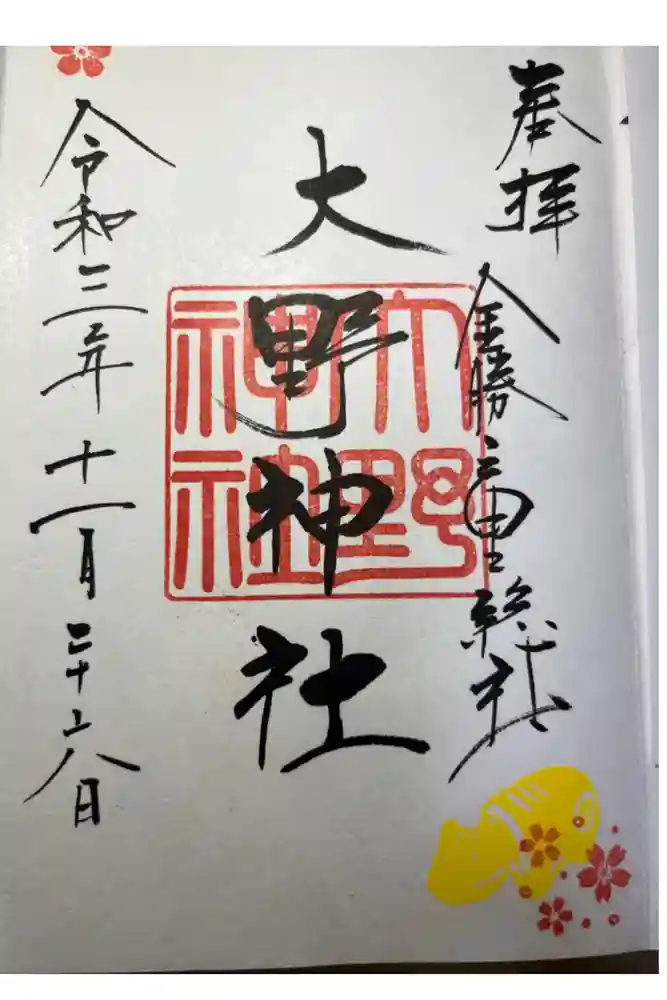 奉拝
金勝三里総社
大野神社
大野
神社
令和三年十一月二十六日